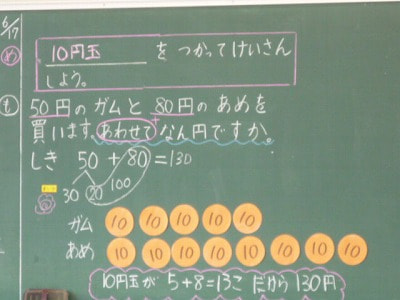 6/17
め 10円玉 をつかってけいさん
しよう。
も 50円のガムと80円のあめを
買います。あわせてなん円ですか。
+
しき 50+80=130
30 20 100
ガム 10 10 10 10 10
あめ 10 10 10 10 10 10 10 10
10円玉が 5+8=13こ だから 130円